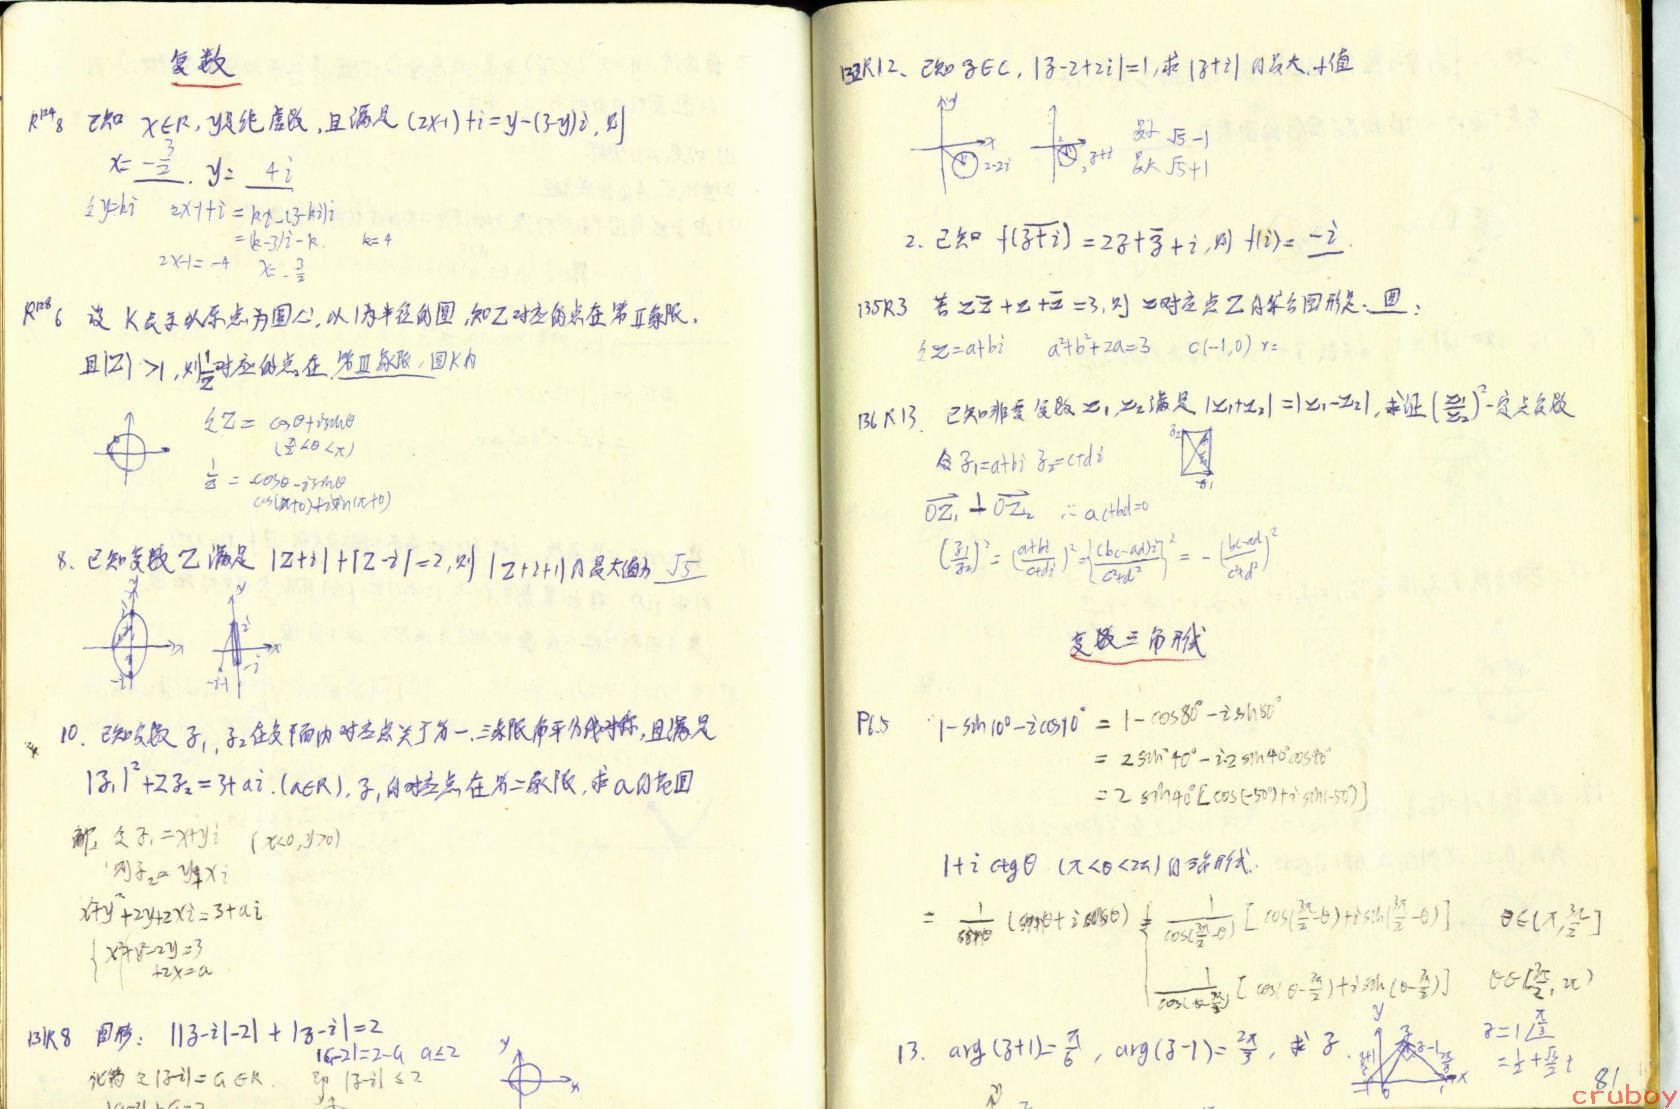 复数
R¹²⁴8 已知 x∈R, y是纯虚数, 且满足 (2x-1)+i=y-(3-y)i, 则
x= -3/2 . y= 4i
令y=ki 2x-1+i=ki-(3-ki)i
=(k-3)i-k. k=4
2x-1=-4 x=-3/2
R¹²⁸6 设 K表示以原点为圆心, 以1为半径的圆, 知Z对应的点在第II象限,
且|Z|>1, 则1/Z对应的点在 第III象限, 圆K内
令Z= cosθ+isinθ
(π/2<θ<π)
1/Z = cosθ-isinθ
cos(π+θ)+isin(π+θ)
8. 已知复数Z满足 |Z+i|+|Z-i|=2, 则 |Z+i+1|的最大值为 √5
10. 已知复数 z₁, z₂在复平面内对应点关于第一、三象限角平分线对称, 且满足
|z₁|²+2z₂=3+ai. (a∈R), z₁的对应点在第二象限, 求a的范围
解: 令z₁=x+yi (x<0, y>0)
则z₂=y+xi
x²+y²+2y+2xi=3+ai
x²+y²-2y=3
+2x=a
131R8 图形: ||z-i|-2|+|z-i|=2
令|z-i|=a∈R. |a-2|=2-a a≤2
即 |z-i|≤2
|a-2|+a=2
132R12. 已知z∈C, |z-2+2i|=1, 求|z+i|的最大、小值
y x
2-2i z+i
最小 √5-1
最大 √5+1
2. 已知 f(z+i)=2z+z̄+i, 则f(i)= -i .
135R3 若zz̄+z+z̄=3, 则 z对应点Z的集合图形是: 圆;
令z=a+bi a²+b²+2a=3 c(-1,0) r=
136R13. 已知非零复数z₁,z₂满足|z₁+z₂|=|z₁-z₂|, 求证(z₁/z₂)²一定是负数
令z₁=a+bi z₂=c+di
OZ₁⊥OZ₂ ∴ac+bd=0
(z₁/z₂)²=((a+bi)/(c+di))²={(bc-ad)i/(c²+d²)}²=-((bc-ad)/(c²+d²))²
复数三角形式
P16.5 1-sin10°-icos10° = 1-cos80°-isin80°
= 2sin²40°-i·2sin40°cos40°
= 2sin40°[cos(-50°)+isin(-50°)]
1+i ctgθ (π<θ<2π)的三角形式.
= 1/sinθ (sinθ+icosθ) = 1/cos(3π/2-θ) [cos(3π/2-θ)+isin(3π/2-θ)] θ∈(π,3π/2]
1/cos(θ-3π/2) [cos(θ-3π/2)+isin(θ-3π/2)] θ∈[3π/2, 2π)
13. arg(z+1)=π/6, arg(z-1)=2π/3, 求z.
z=1∠π/3
=1/2+√3/2 i
81
cruboy